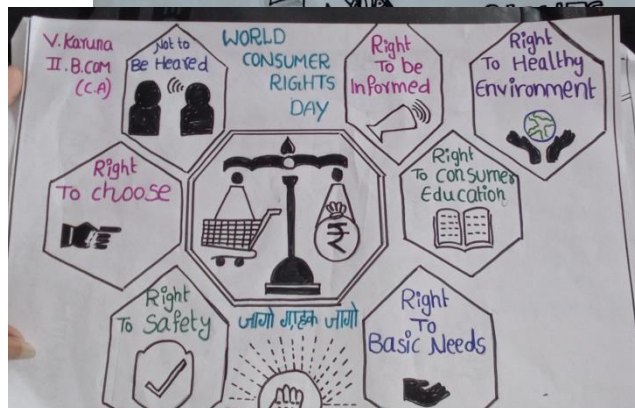 V. Karuna
II. B.COM
(C.A)
Not to
Be Heared
WORLD
CONSUMER
RIGHTS
DAY
Right
To be
Informed
Right
To Healthy
Environment
Right
To choose
₹
Right
To Consumer
Education
Right
To Safety
जागो ग्राहक जागो
Right
To
Basic Needs